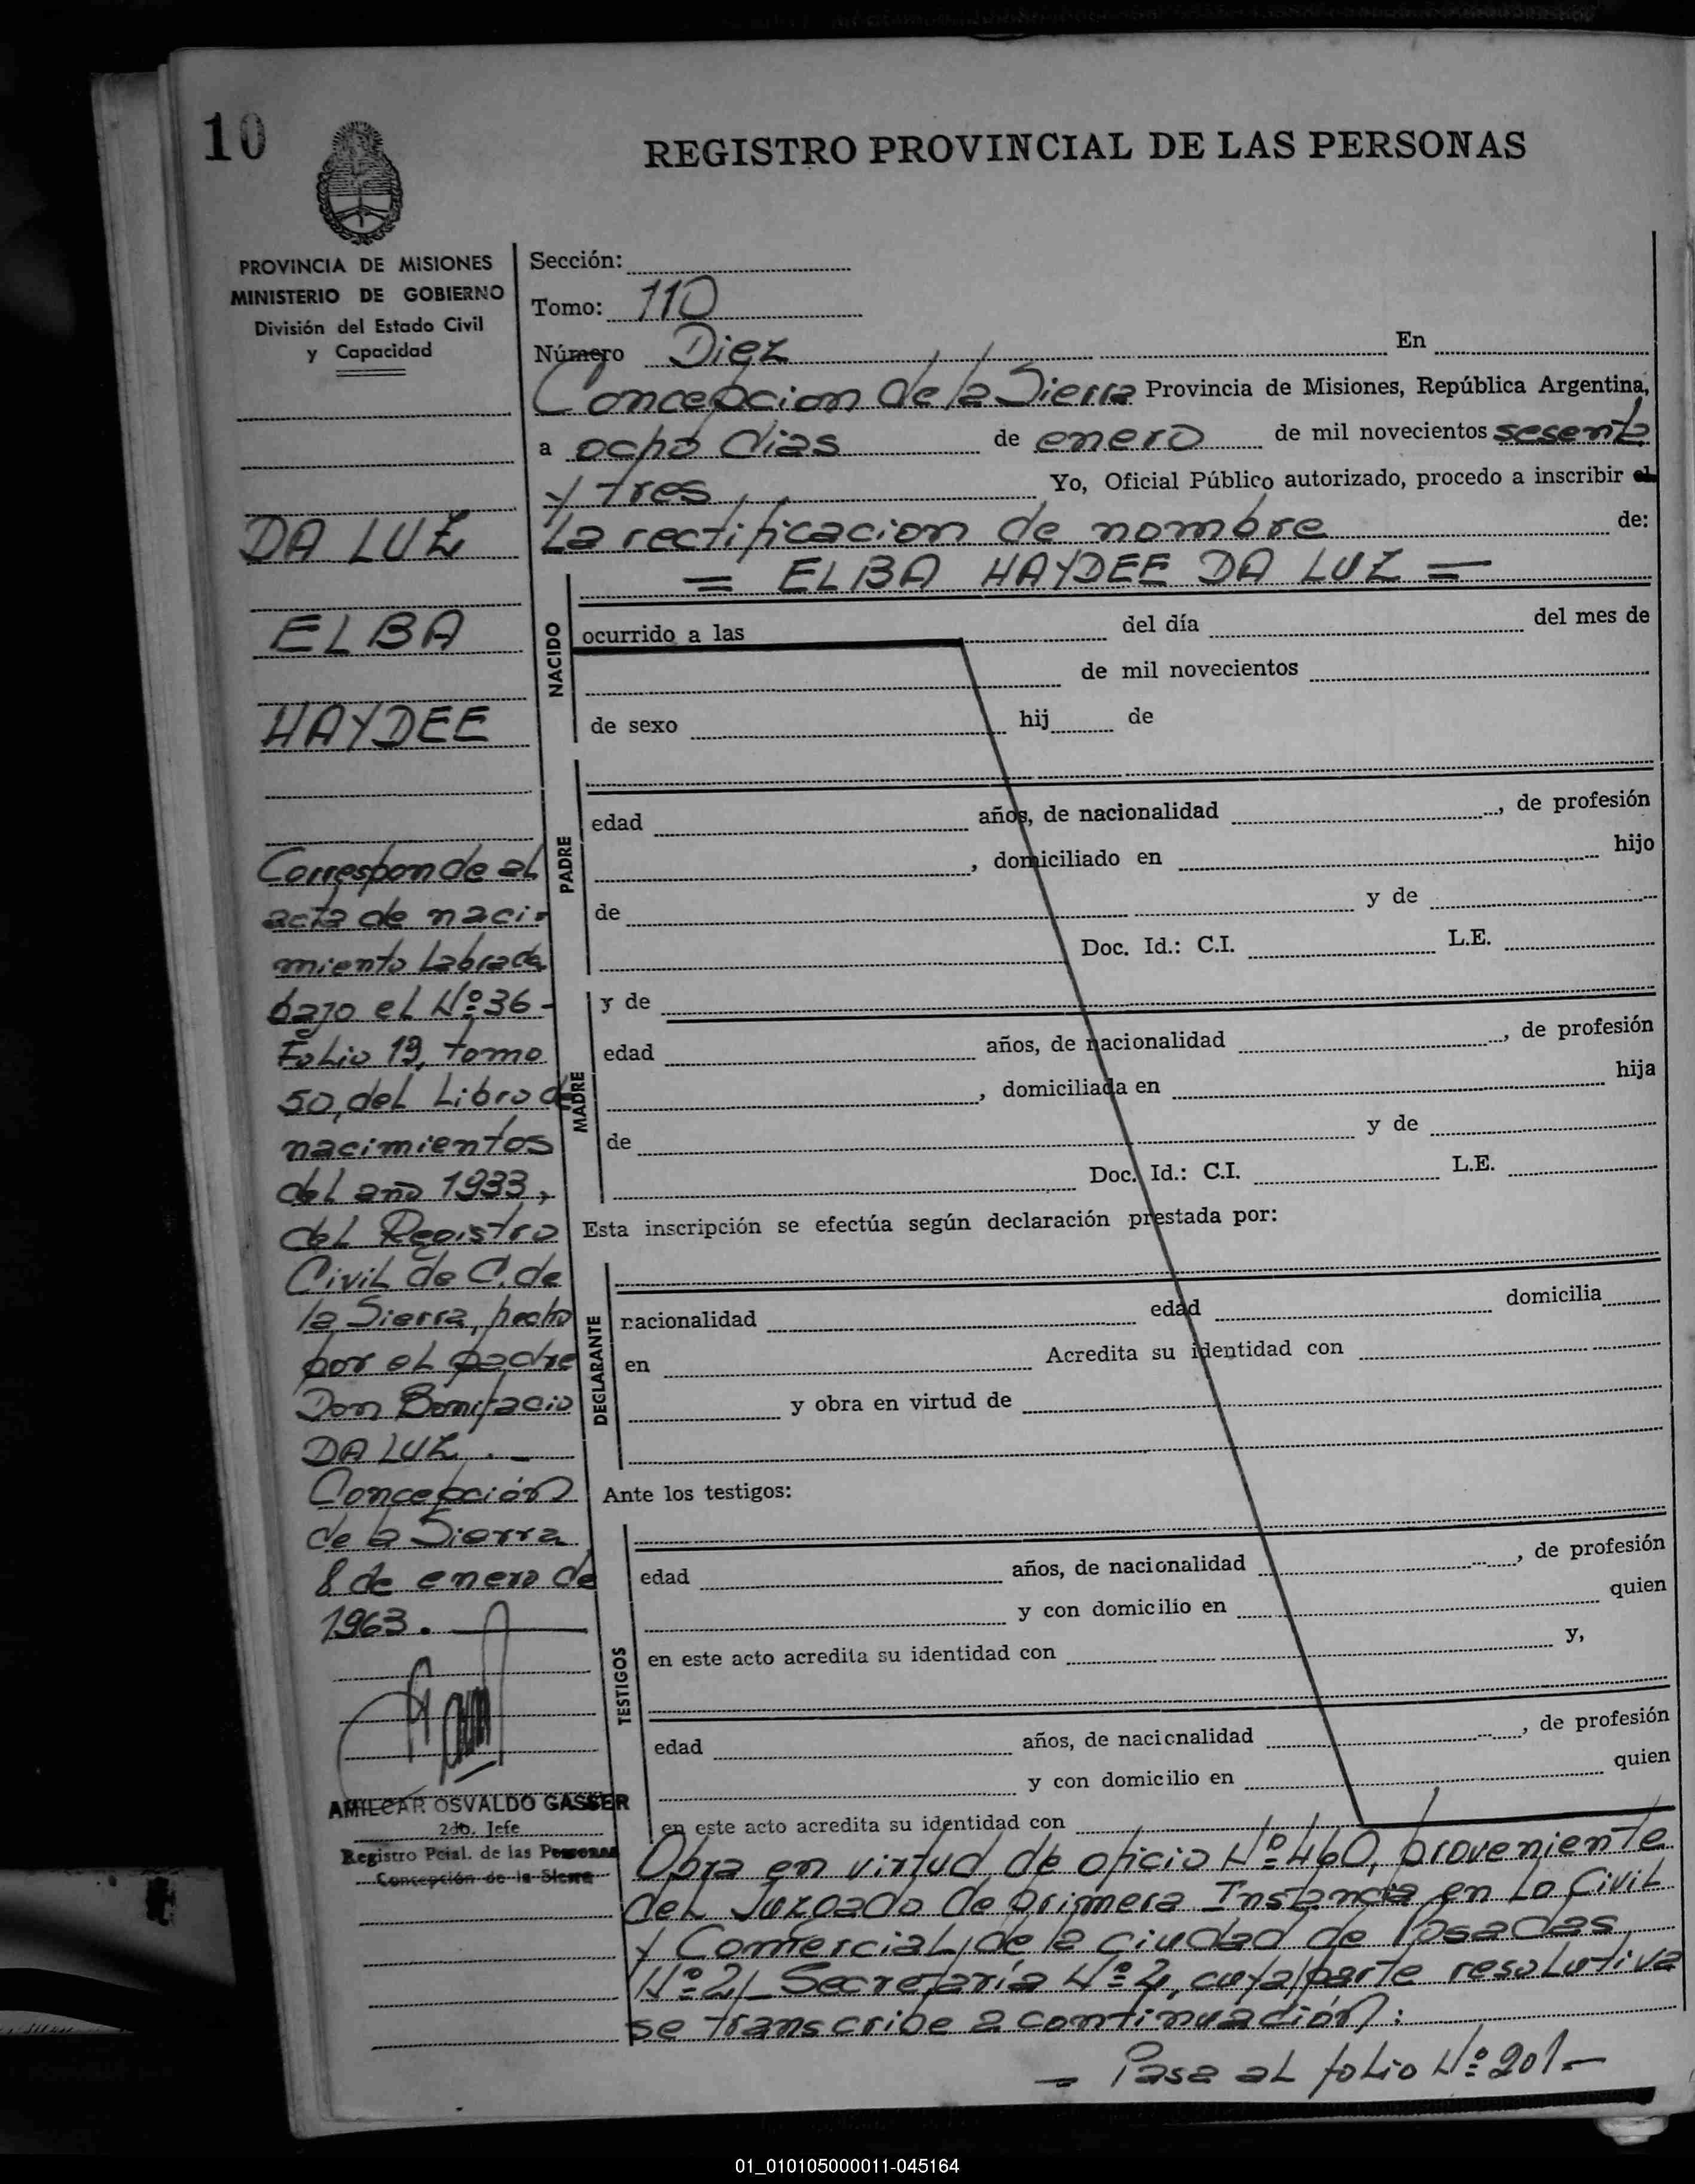 10
REGISTRO PROVINCIAL DE LAS PERSONAS
PROVINCIA DE MISIONES
MINISTERIO DE GOBIERNO
División del Estado Civil
y Capacidad
DA LUZ
ELBA
HAYDEE
Corresponde al
acta de naci-
miento Labrada
bajo el Nº 36 -
Folio 19, tomo
50, del Libro de
nacimientos
del año 1933,
del Registro
Civil de C. de
la Sierra, hecho
por el padre
Don Bonifacio
DA LUZ. -
Concepción
de la Sierra
8 de enero de
1963.
AMILCAR OSVALDO GASSER
2do. Jefe
Registro Pcial. de las Personas
Concepción de la Sierra
Sección:
Tomo: 110
Número Diez En
Concepcion de la Sierra Provincia de Misiones, República Argentina,
a ocho dias de enero de mil novecientos sesenta
y tres Yo, Oficial Público autorizado, procedo a inscribir el
la rectificacion de nombre de:
= ELBA HAYDEE DA LUZ =
NACIDO
ocurrido a las del día del mes de
de mil novecientos
de sexo hij de
PADRE
edad años, de nacionalidad , de profesión
, domiciliado en hijo
de y de
Doc. Id.: C.I. L.E.
MADRE
y de
edad años, de nacionalidad , de profesión
, domiciliada en hija
de y de
Doc. Id.: C.I. L.E.
Esta inscripción se efectúa según declaración prestada por:
DECLARANTE
nacionalidad edad domicilia
en Acredita su identidad con
y obra en virtud de
Ante los testigos:
TESTIGOS
edad años, de nacionalidad , de profesión
y con domicilio en quien
en este acto acredita su identidad con y,
edad años, de nacionalidad , de profesión
y con domicilio en quien
en este acto acredita su identidad con
Obra en virtud de oficio Nº 460, proveniente
del Juzgado de primera Instancia en Lo Civil
y Comercial, de la ciudad de Posadas
Nº 2/_ Secretaría Nº 4, cuya parte resolutiva
se transcribe a continuación:
= Pasa al folio Nº 201 -
01_010105000011-045164